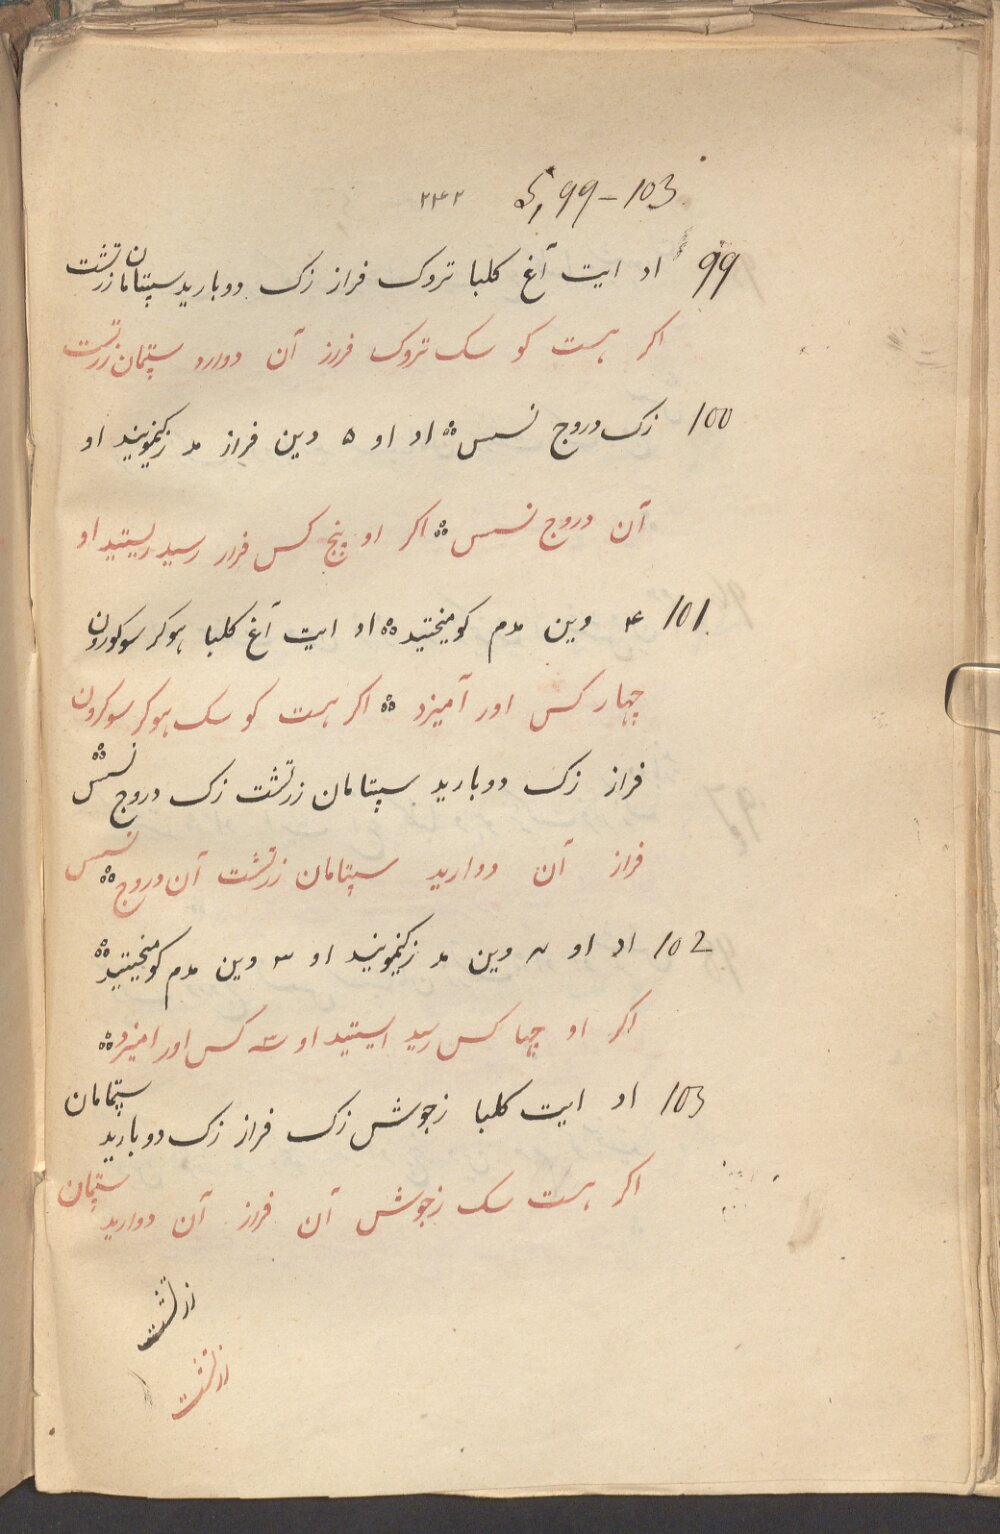 5, 99-103 ۲۴۲
99 اد ایت آغ کلبا تروک فراز زک دوبارید سپتامان زرتشت
اکر هست کو سک تروک فرز آن دوارد سپتمان زرتشت
100 زک دروج نسس ܀ اد او ۵ دین فراز مد زکیمونید او
آن دروج نسس ܀ اکر او پنج کس فراز رسید ایستید او
101 ۴ دین مدم کومیختید ܀ اد ایت آغ کلبا هوکر سوکورون
چهار کس اور آمیزد ܀ اکر هست کو سک هوکر سوکرون
فراز زک دوبارید سپتامان زرتشت زک دروج نسس ܀
فراز آن دوارید سپتامان زرتشت آن دروج نسس ܀
102 اد او ۴ دین مد زکیمونید او ۳ دین مدم کومیختید ܀
اکر او چها کس رسید ایستید او سه کس اور امیزد ܀
103 اد ایت کلبا زجوش زک فراز زک دوبارید سپتامان
اکر هست سک زجوش آن فراز آن دوارید سپتمان
زرتشت
زرتشت